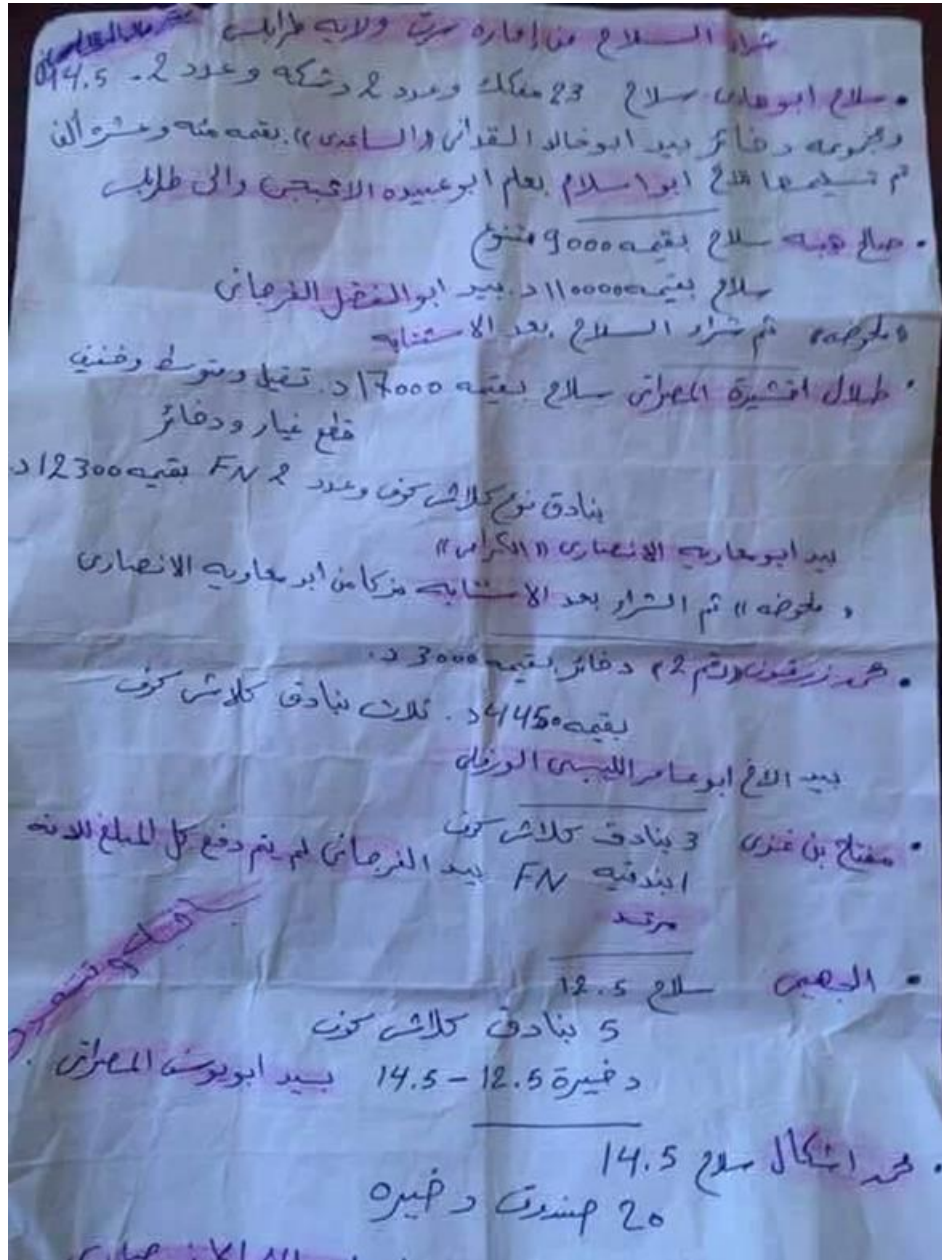 شراء السلاح من إمارة سرت ولايه طرابلس
• سلاح ابوهادى سلاح 23 مفكك وعدد 2 دشكه وعدد 2 - 14.5
ومجموعه دخائر بيد ابوخالد القدافى «الساعدى» بقيمه مئه وعشره ألف
تم تسليمها للاخ ابو اسلام بعلم ابو عبيده والى طرابلس
• صالح هيبه سلاح بقيمه 9000 متنوع
سلاح بقيمه 110000د. بيد ابوالفضل الفرجانى
«ملحوضه» تم شراء السلاح بعد الاستتابه
• طلال اقشيرة المصراتى سلاح بقيمه 17000د. تقيل ومتوسط وخفيف
قطع غيار ودخائر
بنادق نوع كلاش كوف وعدد 2 FN بقيمه 12300د.
بيد ابو معاويه الانصارى «الكرامى»
«ملحوضه» تم الشراء بعد الاستتابه مزكا من ابو معاويه الانصارى
• محمد زرقون «رقم 2» دخائر بقيمه 3000د.
بقيمه 4450د. ثلاث بنادق كلاش كوف
بيد الاخ ابو عامر الليبى الورفلى
• مفتاح بن غزى 3 بنادق كلاش كوف
1 بندقيه FN بيد الفرجانى لم يتم دفع كل المبلغ لانه
مرتد
• سلاح 12.5
5 بنادق كلاش كوف
دخيرة 12.5 - 14.5 بيد ابويوسف المصراتى
• محمد اشكال سلاح 14.5
20 صندوق دخيره